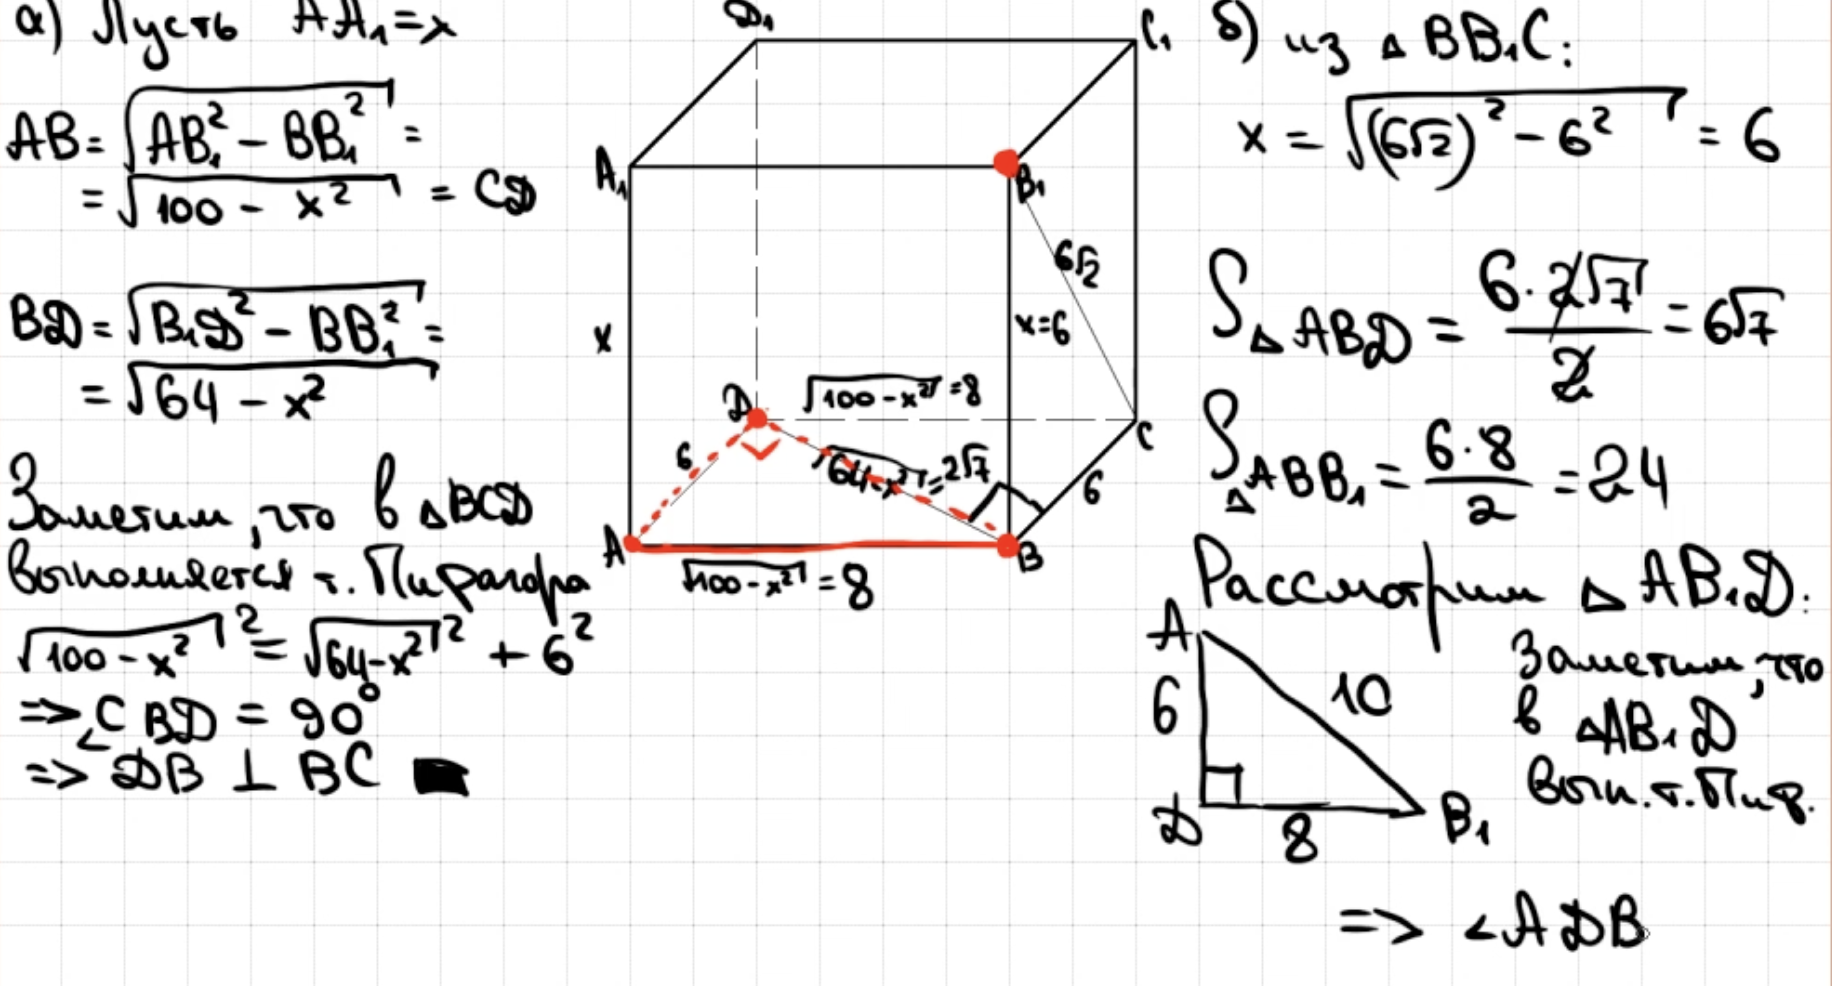 а) Пусть AA₁=x
AB=√(AB₁²-BB₁²)=
=√(100-x²)=CD
BD=√(B₁D²-BB₁²)=
=√(64-x²)
Заметим, что в △BCD
выполняется т. Пифагора
√(100-x²)²=√(64-x²)²+6²
=>∠CBD=90°
=>DB⊥BC
D₁
C₁
A₁
B₁
6√2
x
x=6
D
√(100-x²)=8
C
6
√(64-x²)=2√7
6
A
B
√(100-x²)=8
б) из △BB₁C:
x=√((6√2)²-6²)=6
S△ABD=6·2√7/2=6√7
S△ABB₁=6·8/2=24
Рассмотрим △AB₁D:
A
6
10
D
8
B₁
Заметим, что
в △AB₁D
вып. т. Пиф.
=>∠ADB